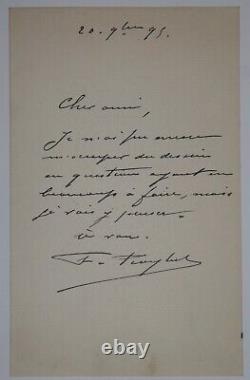 20. 9bre 95.
Cher ami,
Je n'ai pu encore
m'occuper du dessin
en question ayant eu
beaucoup à faire, mais
je vais y penser.
à vous.
F.
ebay